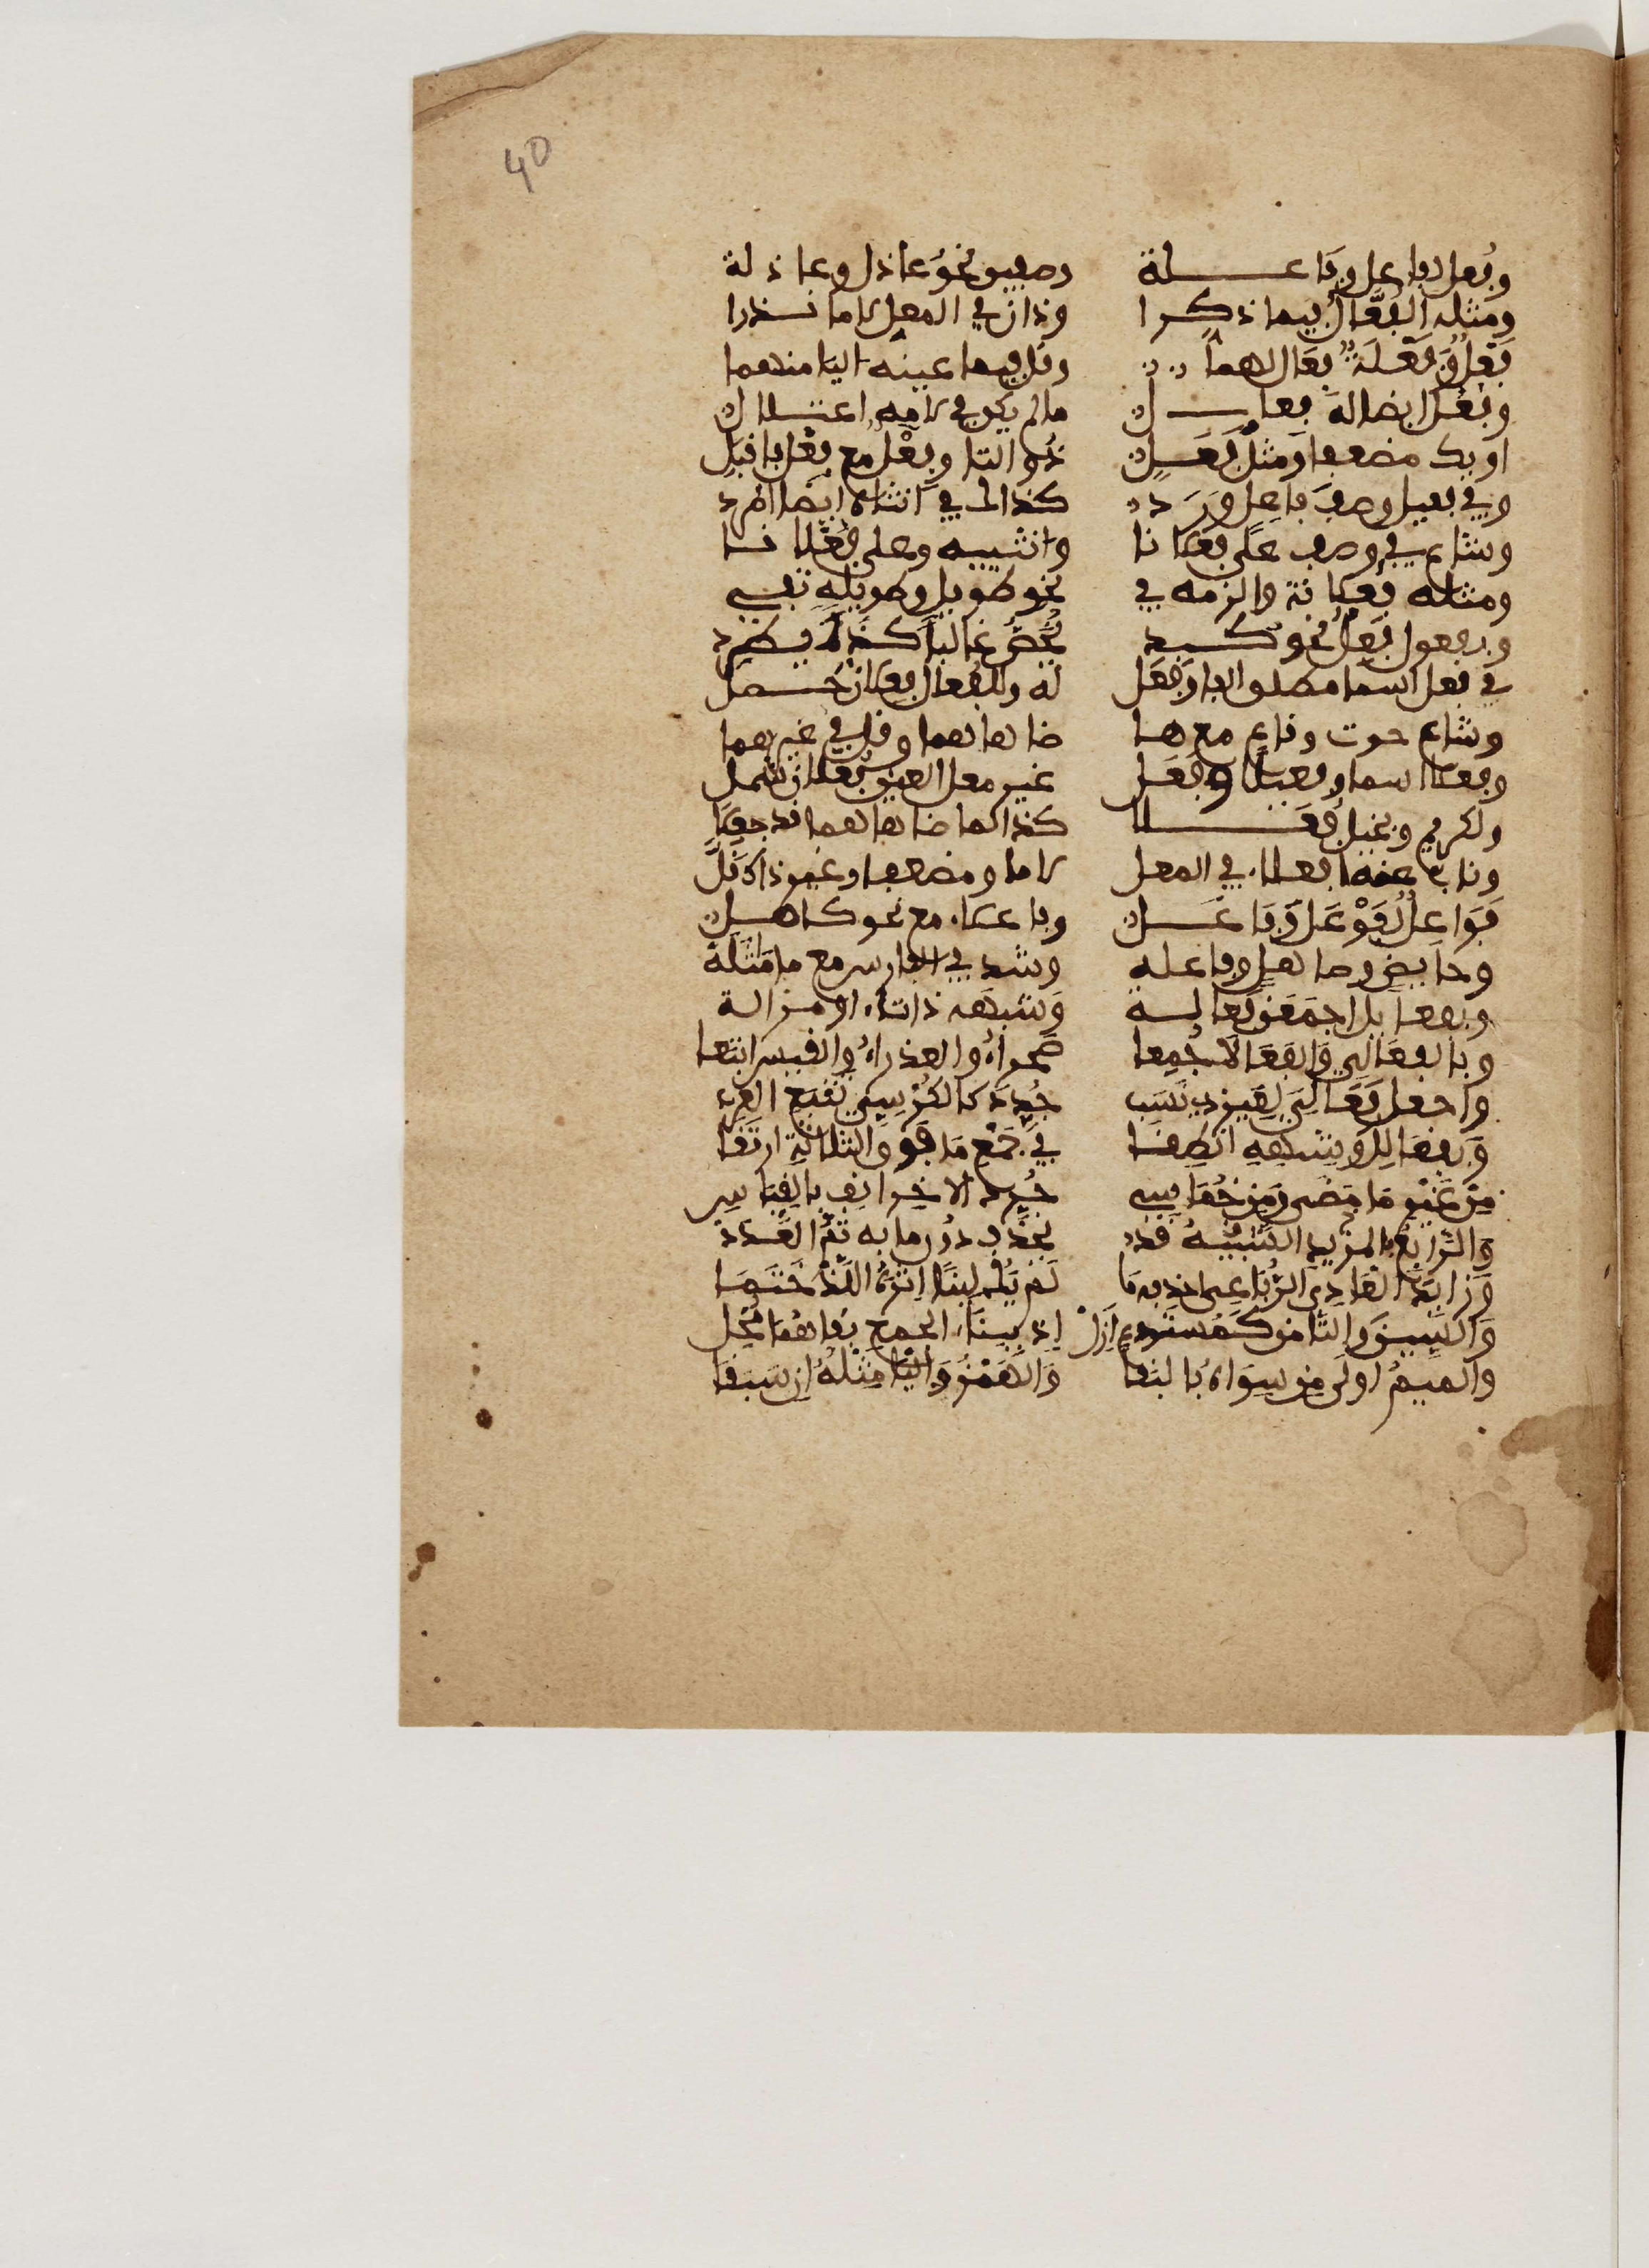 40
وفعل لفاعل وفاعلة وصفين نحو عاذل وعاذلة
ومثله الفعال فيما ذكرا وذان في المعل لاما نذرا
فعل وفعلة فعال لهما وقل فيما عينه اليا منهما
وفعل ايضا له فعال ما لم يكن في لامه اعتلال
او يك مضعفا ومثل فعل ذو التا وفعل مع فعل فاقبل
وفي فعيل وصف فاعل ورد كذاك في انثاه ايضا اطرد
وشاع في وصف على فعلانا وانثييه وعلى فعلانا
ومثله فعلانة والزمه في نحو طويل وطويلة تفي
وبفعول فعل نحو كبد يخص غالبا كذاك يطرد
في فعل اسما مطلق الفا وفعل له وللفعال فعلان حصل
وشاع حوت وقاع مع ما ضاهاهما وقل في غيرهما
وفعلا اسما وفعيلا وفعل غير معل العين فعلان شمل
ولكريم وبخيل فعلا كذا لما ضاهاهما قد جعلا
وناب عنه افعلاء في المعل لاما ومضعف وغير ذاك قل
فواعل لفوعل وفاعل وفاعلاء مع نحو كاهل
وحايض وصاهل وفاعله وشذ في الفارس مع ما ماثله
وبفعايل اجمعن فعاله وشبهه ذا تاء او مزالة
وبالفعالي والفعالى جمعا صحراء والعذراء والقيس اتبعا
واجعل فعالي لغير ذي نسب جدد كالكرسي تتبع العرب
وبفعالل وشبهه انطقا في جمع ما فوق الثلاثة ارتقا
من غير ما مضى ومن خماسي جرد الاخر انف بالقياس
والرابع الشبيه بالمزيد قد يحذف دون ما به تم العدد
وزايد العادي الرباعي احذفه ما لم يك لينا اثره اللذ ختما
والسين والتا من كمستدع ازل اذ ببنا الجمع بقاهما مخل
والميم اولى من سواه بالبقا والهمز واليا مثله ان سبقا